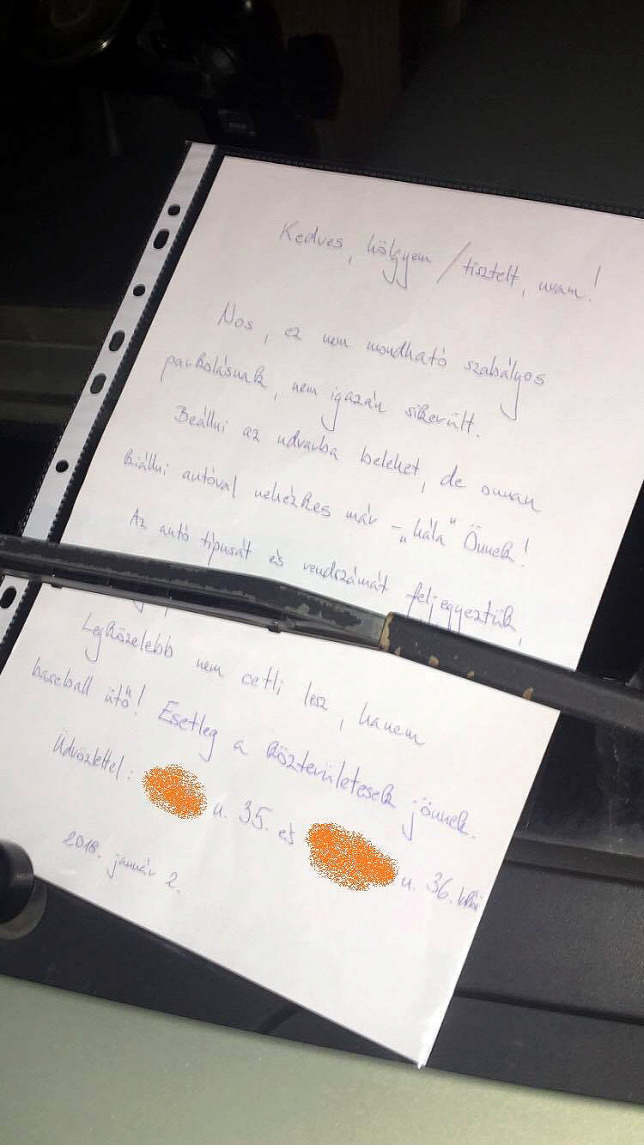 Kedves, hölgyem / tisztelt, uram!
Nos, ez nem mondható szabályos
parkolásnak, nem igazán sikerült.
Beállni az udvarba belehet, de onnan
kiállni autóval nehézkes már - „hála" Önnek!
Az autó típusát és rendszámát feljegyeztük,
Legközelebb nem cetli lesz, hanem
baseball ütő! Esetleg a közterületesek jönnek.
Üdvözlettel: u. 35. és u. 36. lakói
2018. január 2.